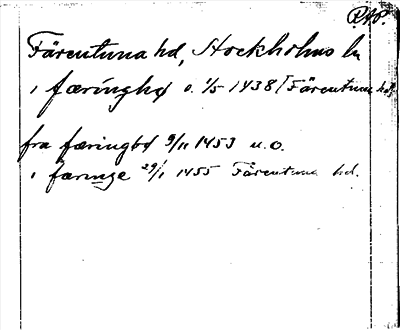 RAP.
Färentuna hd, Stockholms ln
i færinghꝫ o. 1/5 1438 [Färentuna hd]
fra færingbꝫ 9/11 1453 u.o.
i færinge 29/1 1455 Färentuna hd.